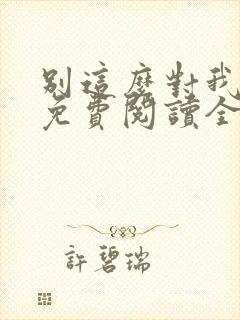 別這麼對我
免費閱讀全
許碧瑞